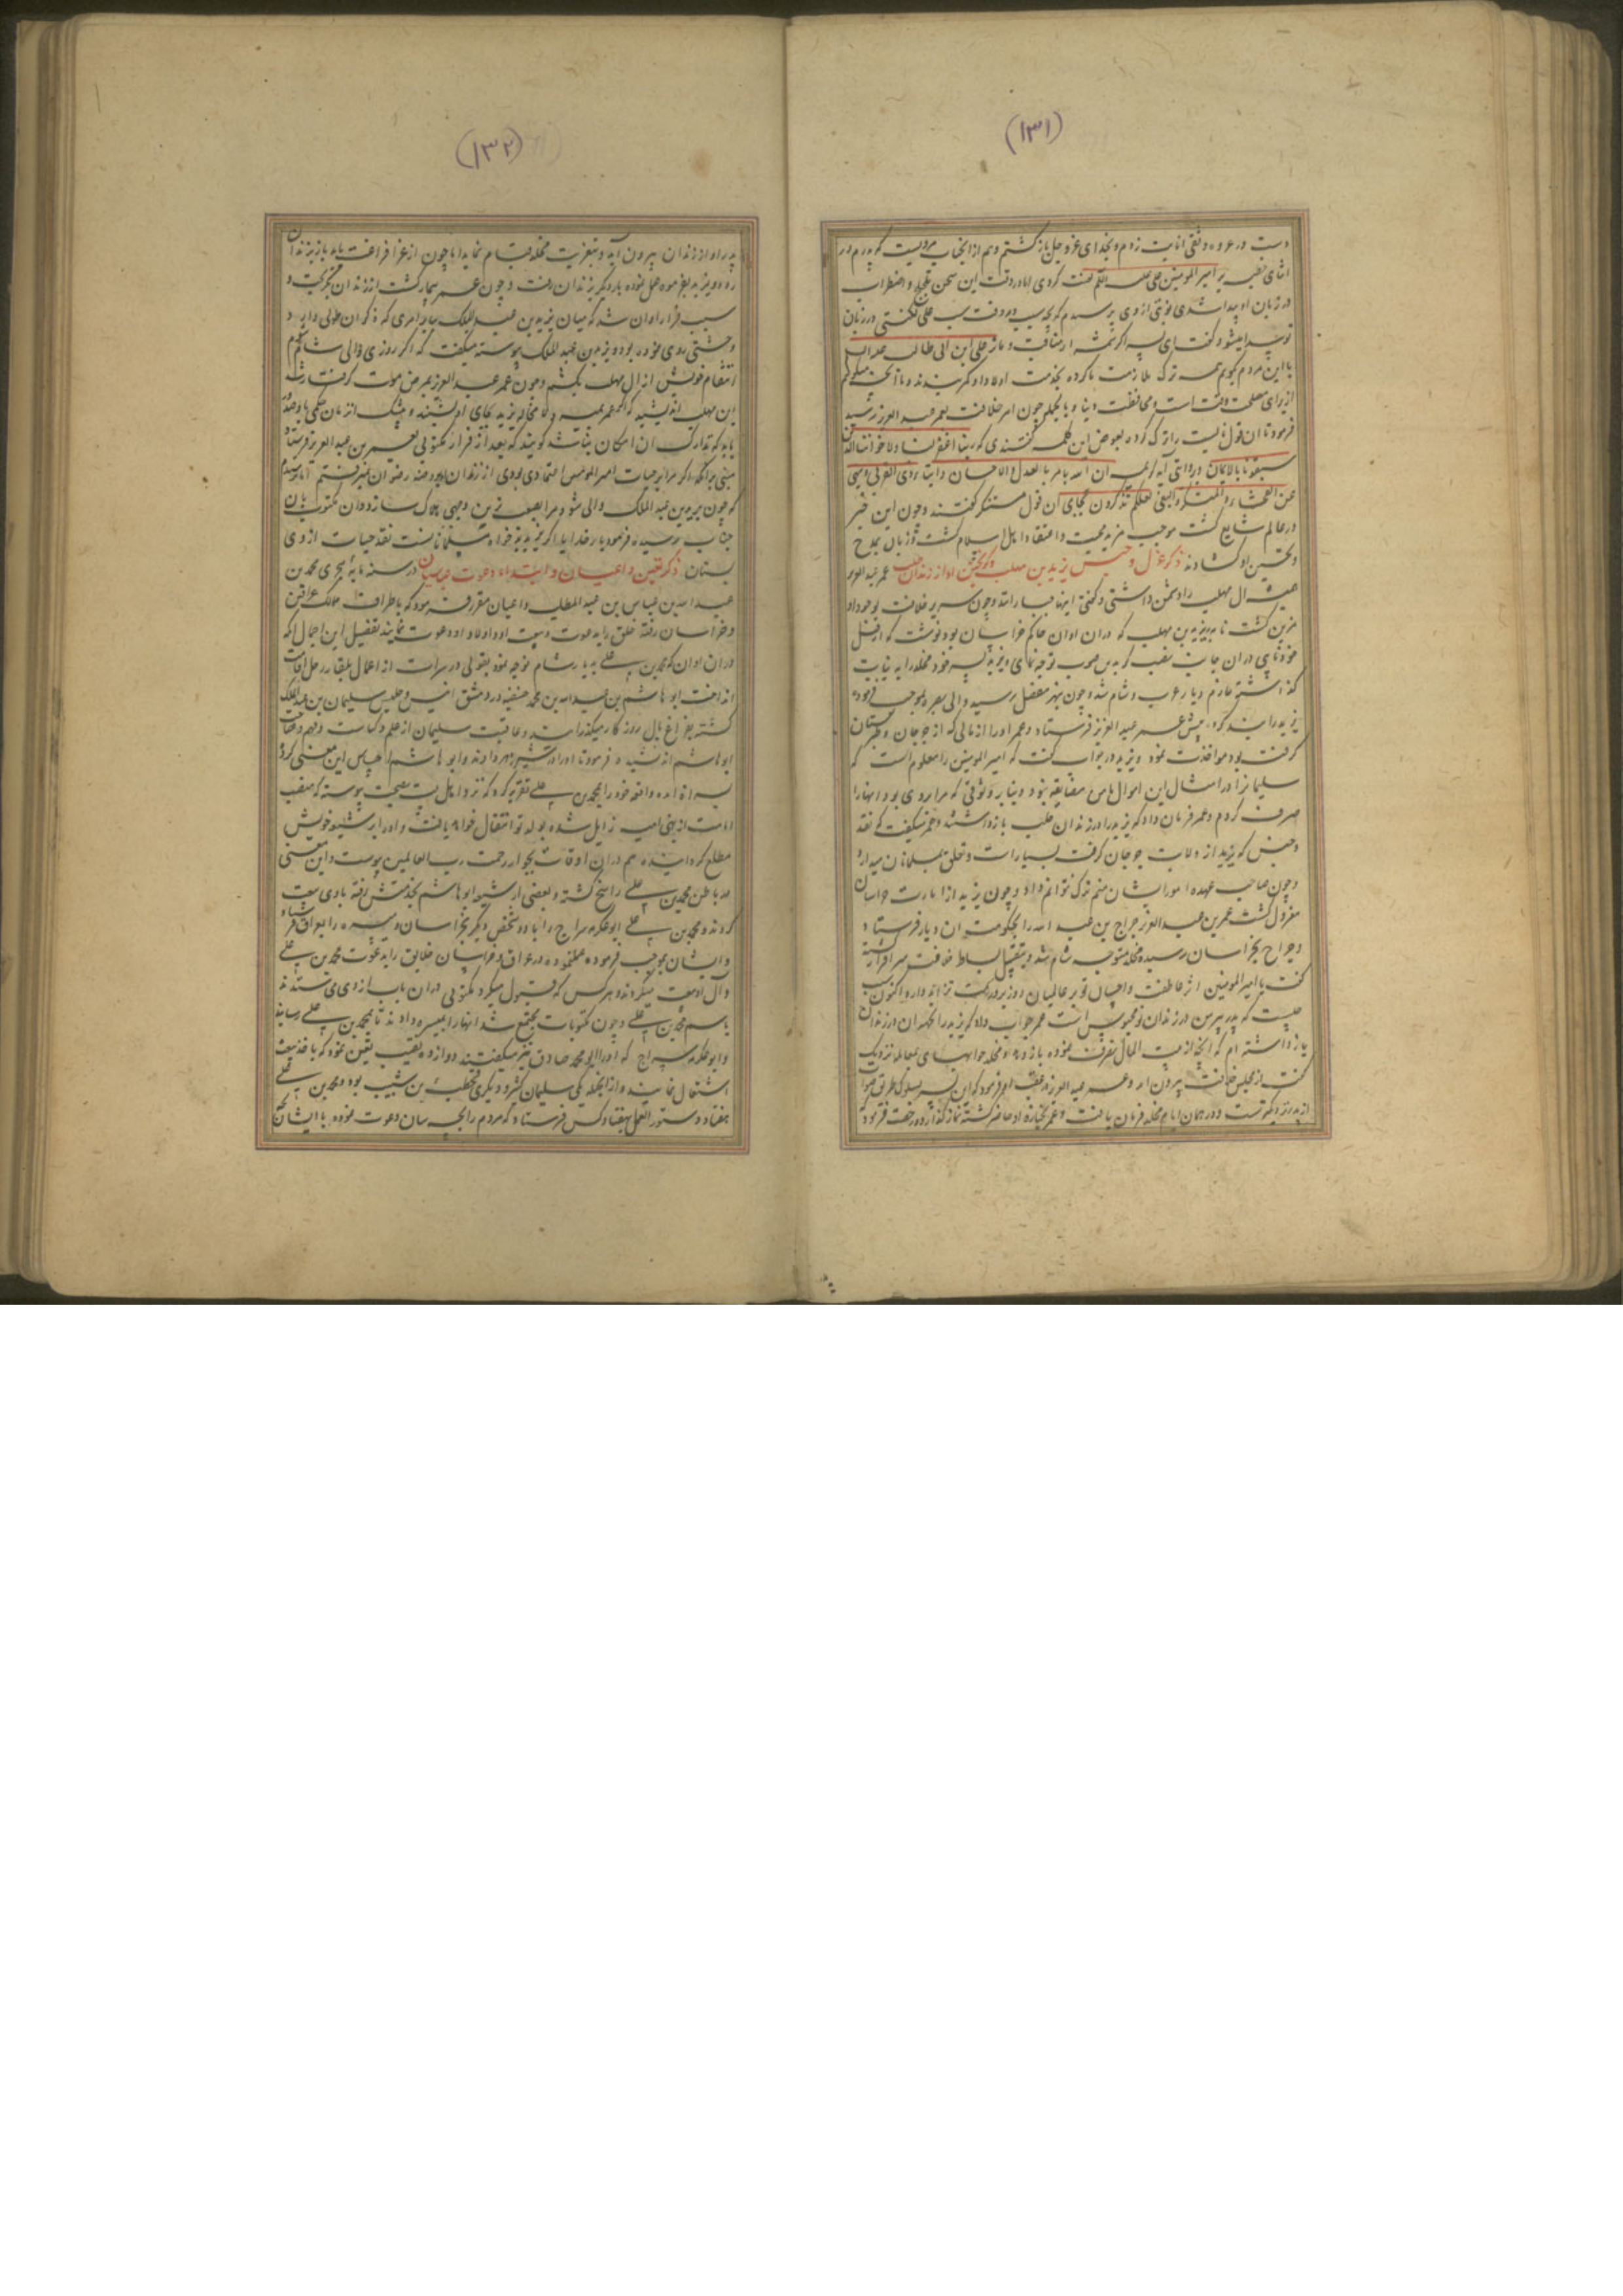 (۱۳۱)
دست در عروه وثقی انابت زدم و بخدای عز و جل بازگشتم و هم از انجناب مرویست که پدرم در
اثنای خطبه بر امیر المومنین علی علیه السلم لعنت کردی اما در وقت این سخن تلجلج و اضطراب
در زبان او پیدا شدی نوبتی از وی پرسیدم که چه سبب در وقت سب علی لکنتی در زبان
تو پیدا میشود گفت ای پسر اگر شمه از مناقب و ماثر علی ابن ابی طالب علیه السلم
با این مردم کویم همه ترک ملازمت ما کرده بخدمت اولاد او کمر بندند و ما آنچه میکنیم
از برای مصلحت وقت است و محافظت دنیا و بالجمله چون امر خلافت بعمر عبد العزیز رسید
فرمود تا ان قول ناپسندیده را ترک کرده بعوض این کلمه گفتندی که ربنا اغفر لنا ولاخواننا الذین
سبقونا بالایمان و بروایتی آیه کریمه ان الله یامر بالعدل والاحسان وایتاء ذی القربی وینهی
عن الفحشاء والمنکر والبغی لعلکم تذکرون بجای ان قول مستنکر گفتند و چون این خبر
در عالم شایع گشت موجب مزید محبت و اعتقاد اهل اسلام گشت و زبان بمدح
و تحسین او گشادند ذکر عزل و حبس یزید بن مهلب و گریختن او از زندان حلب عمر عبد العزیز
همیشه ال مهلب را دشمن داشتی و گفتی اینها جبارانند و چون سریر خلافت بوجود او
مزین گشت نامه بیزید بن مهلب که دران اوان حاکم خراسان بود نوشت که از قبل
خود نایبی دران جانب نصب کرده بدین صوب توجه نمای و یزید پسر خود مخلد را به نیابت
گذاشته عازم دیار عرب و شام شد و چون بنهر معقل رسید والی بصره بموجب فرموده
یزید را بند کرده پیش عمر عبد العزیز فرستاد و عمر او را از مالی که از جرجان و طبرستان
گرفته بود مواخذت نمود و یزید در جواب گفت که امیر المومنین را معلوم است که
سلیمان را در امثال این اموال با من مضایقه نبود و بنابر وثوقی که مرا بروی بود انها را
صرف کردم و عمر فرمان داد که یزید را در زندان حلب بازداشتند و عمر میگفت که نقد
و جنس که یزید از ولایت جرجان گرفته بسیار است و تعلق بمسلمانان میدارد
و چون صاحب عهده امور ایشان منم ترک نتوانم داد و چون یزید از امارت خراسان
معزول گشت عمر بن عبد العزیز جراح بن عبد الله را بحکومت ان دیار فرستاد
و جراح بخراسان رسیده مخلد متوجه شام شد و بتقبیل بساط خلافت سرافراز گشته
گفت یا امیر المومنین اثر عاطفت و احسان تو بر عالمیان روز بروز سمت تزاید دارد اکنون سبب
چیست که پدر پیر من در زندان تو محبوس است عمر جواب داد که یزید را بجهت ان در زندان
باز داشته ام که انچه از بیت المال تصرف نموده باز دهد و مخلد جوابهای بمعامله نزدیک
گفت از مجلس خلافت بیرون امد و عمر عبد العزیز در عقب او فرمود که این پسر بسلوک طریق صواب
از پدر نزدیکتر است و در همان ایام مخلد فرمان یافت و عمر بجنازه او حاضر گشته نماز گذارد و رخصت فرمود که
(۱۳۲)
پدر او از زندان بیرون آید و بتعزیت مخلد قیام نماید اما چون از عزا فراغت یابد باز بزندان
رود و یزید بفرموده عمل نموده بار دیگر بزندان رفت و چون عمر بیمار گشت از زندان بگریخت و
سبب فرار او ان شد که میان یزید بن عبد الملک بنابر امری که ذکر ان طولی دارد
وحشتی روی نموده بود و یزید بن عبد الملک پیوسته میگفت که اگر روزی والی شام شوم
انتقام خویش از ال مهلب بکشم و چون عمر عبد العزیز بمرض موت گرفتار شد
ابن مهلب اندیشید که اگر عمر بمیرد لا محاله یزید بجای او نشیند و بیشک از زمان حکمی با و صدور
یابد که تدارک ان امکان نباشد گویند که بعد از فرار مکتوبی بعمر بن عبد العزیز فرستاد
مبنی برانکه اگر مرا بر حیات امیر المومنین اعتمادی بودی از زندان بروضه رضوان نمیرفتم اما ترسیدم
که چون یزید بن عبد الملک والی شود مرا بصعب ترین وجهی هلاک سازد و ان مکتوب بان
جناب رسیده فرمود بار خدایا اگر یزید بدخواه مسلمانانست نقد حیات از وی
بستان ذکر تعیین داعیان و ابتداء دعوت عباسیان در سنه مایه هجری محمد بن
عبد الله بن عباس بن عبد المطلب داعیان مقرر فرمود که باطراف ممالک عراقین
و خراسان رفته خلق را به دعوت و بیعت او و اولاد او دعوت نمایند تفصیل این اجمال انکه
دران اوان که محمد بن علی بدیار شام توجه نمود بقولی در سراة از اعمال بلقا رحل اقامت
انداخت ابو هاشم بن عبد الله بن محمد حنفیه در دمشق انیس و جلیس سلیمان بن عبد الملک
گشته بفراغ بال روزگار میگذرانید و عاقبت سلیمان از علم و کیاست و فهم و فصاحت
ابو هاشم اندیشید و فرمود تا او را در شیر زهر دادند و ابو هاشم احساس این معنی کرده
بسراة امد و واقعه خود را بمحمد بن علی تقریر کرد که نزد اهل بیت بصحت پیوسته که منصب
امامت از بنی امیه زایل شده بولد تو انتقال خواهد یافت و او را بر شیعه خویش
مطلع گردانیده هم دران اوقات بجوار رحمت رب العالمین پیوست و این معنی
در باطن محمد بن علی راسخ گشته و بعضی از شیعه ابو هاشم بخدمتش رفته با وی بیعت
کردند و محمد بن علی ابو عکرمه سراج را با دو شخص دیگر بخراسان و میسره را بعراق فرستاد
و ایشان بموجب فرموده عمل نموده در عراق و خراسان خلایق را بدعوت محمد بن علی
و آل او بیعت میکردند و هر کس که قبول میکرد مکتوبی دران باب از وی می ستدند
باسم محمد بن علی و چون مکتوبات مجتمع شد انها را بمیسره دادند تا بمحمد بن علی رسانید
و ابو عکرمه سراج که او را ابو محمد صادق نیز میگفتند دوازده نقیب تعیین نمود که باخذ بیعت
اشتغال نمایند و از انجمله یکی سلیمان کثیر و دیگری قحطبه بن شبیب بود و محمد بن علی
هفتاد دستور العمل بهفتاد کس فرستاد که مردم را بچه سان دعوت نموده با ایشان